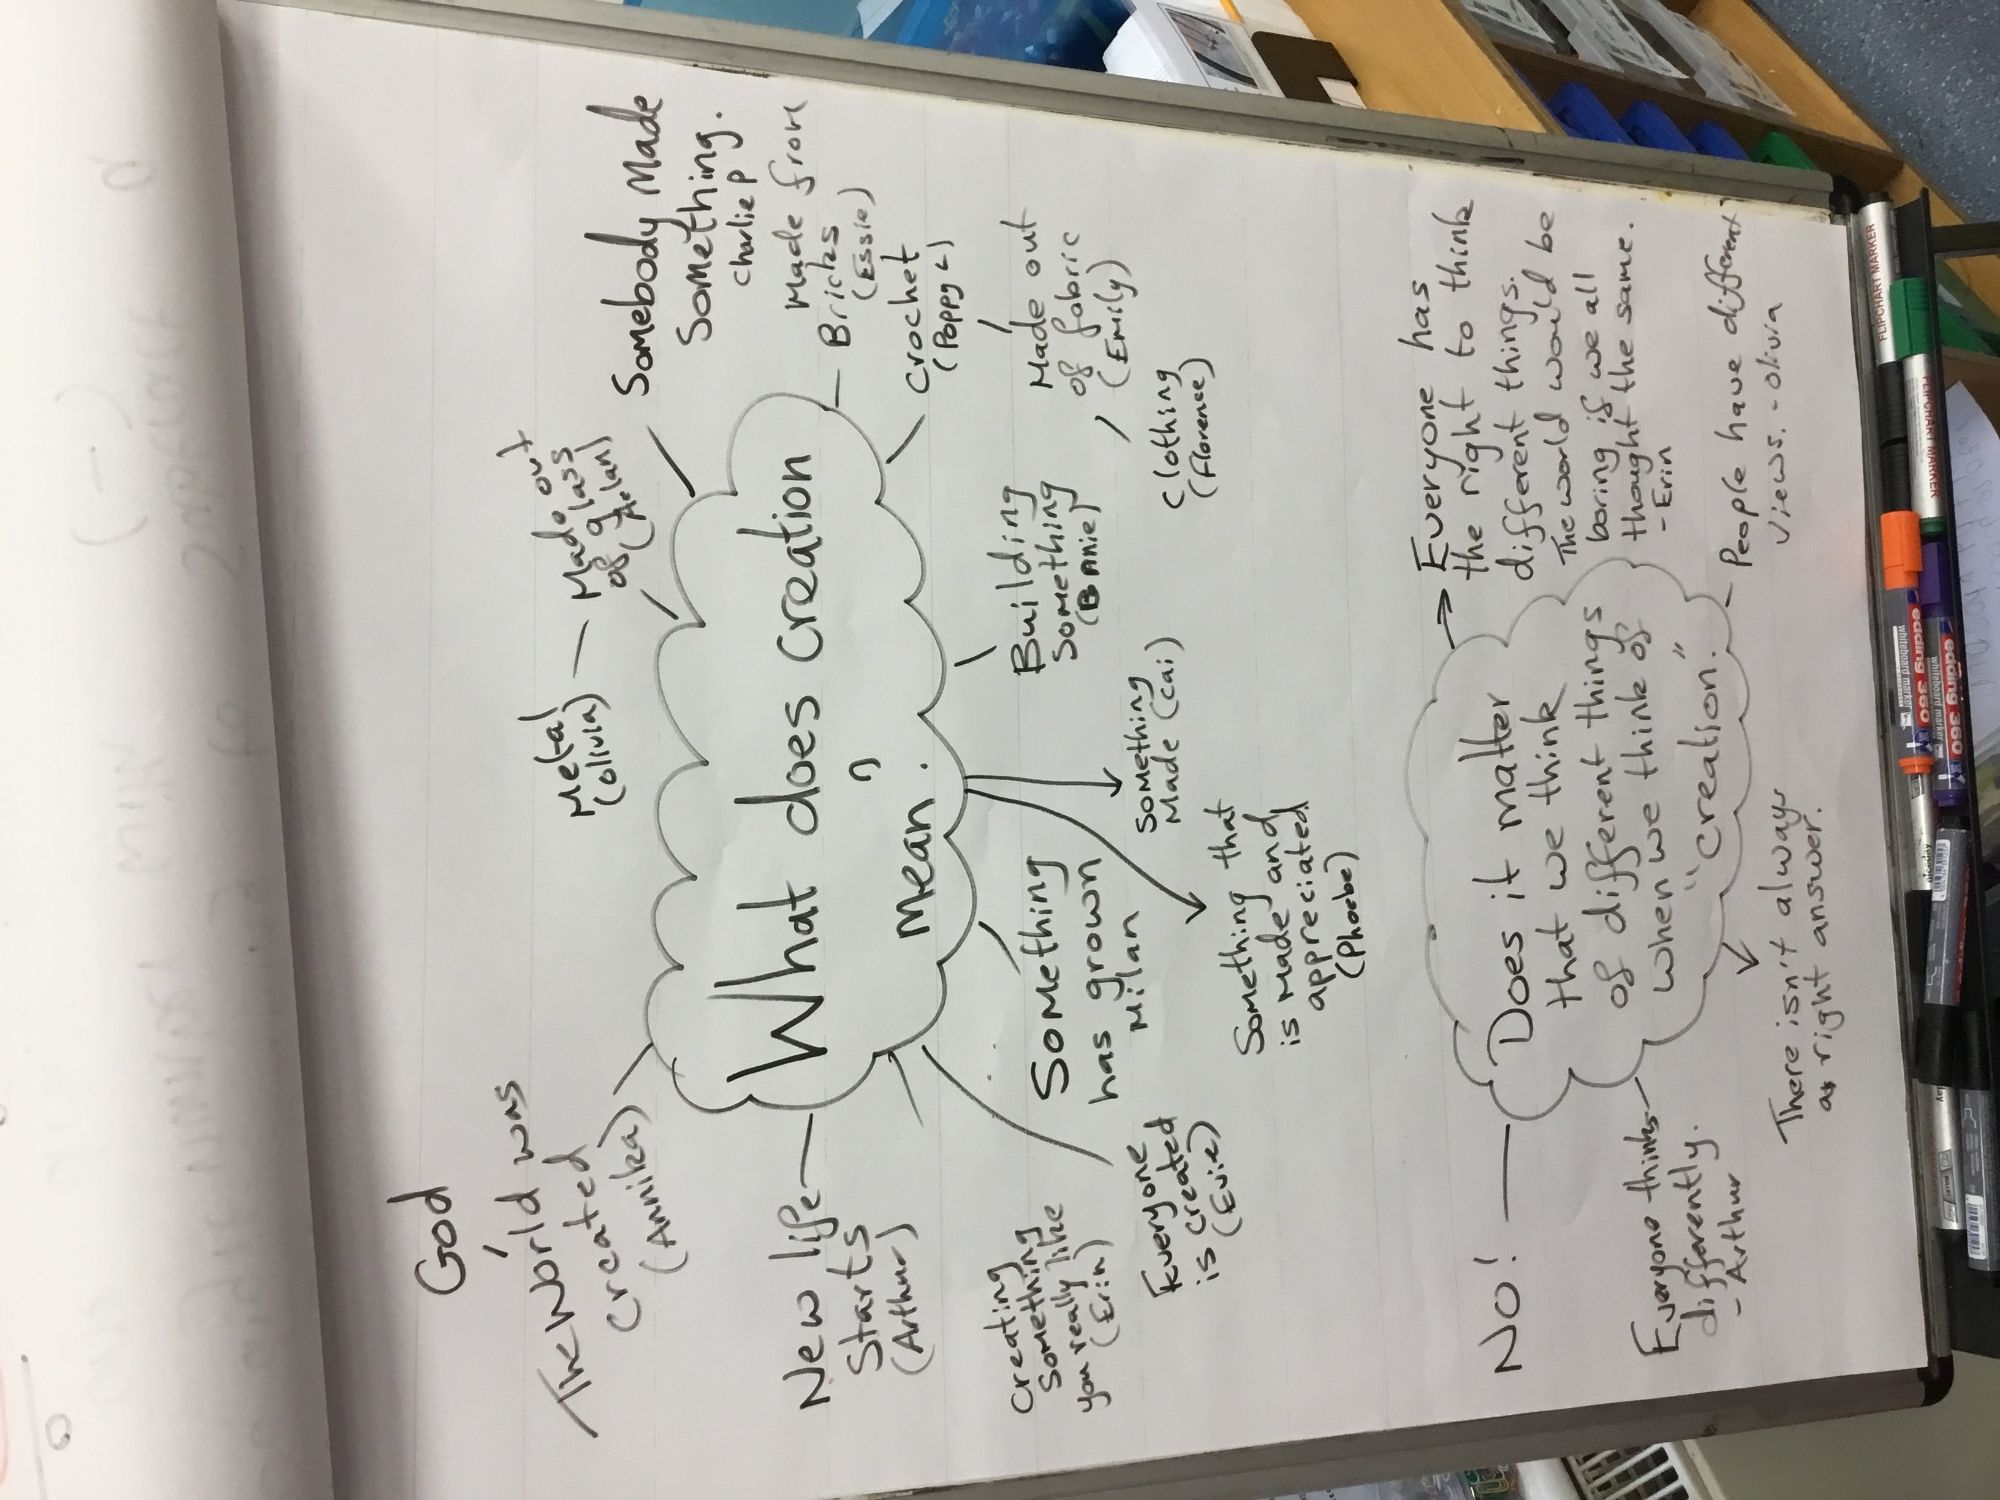 God
The World was
created
(Annika)
Metal
(Olivia)
Made out
of glass
(Arlan)
Somebody Made
Something.
Charlie P
New life
Starts
(Arthur)
What does creation
mean?
Made from
Bricks
(Essie)
Crochet
(Poppy L)
Creating
Something
you really like
(Erin)
Something
has grown
Milan
Building
Something
(Bonnie)
Made out
of fabric
(Emily)
Everyone
is created
(Evie)
Something that
is made and
appreciated
(Phoebe)
Something
Made (Cai)
Clothing
(Florence)
NO!
Does it matter
that we think
of different things
when we think of
"creation."
Everyone has
the right to think
different things.
The world would be
boring if we all
thought the same.
- Erin
Everyone thinks
differently.
- Arthur
There isn't always
a right answer.
People have different
views. - Olivia
FLIPCHART MARKER
FLIPCHART MARKER
edding 360
whiteboard marker
edding 360
whiteboard marker